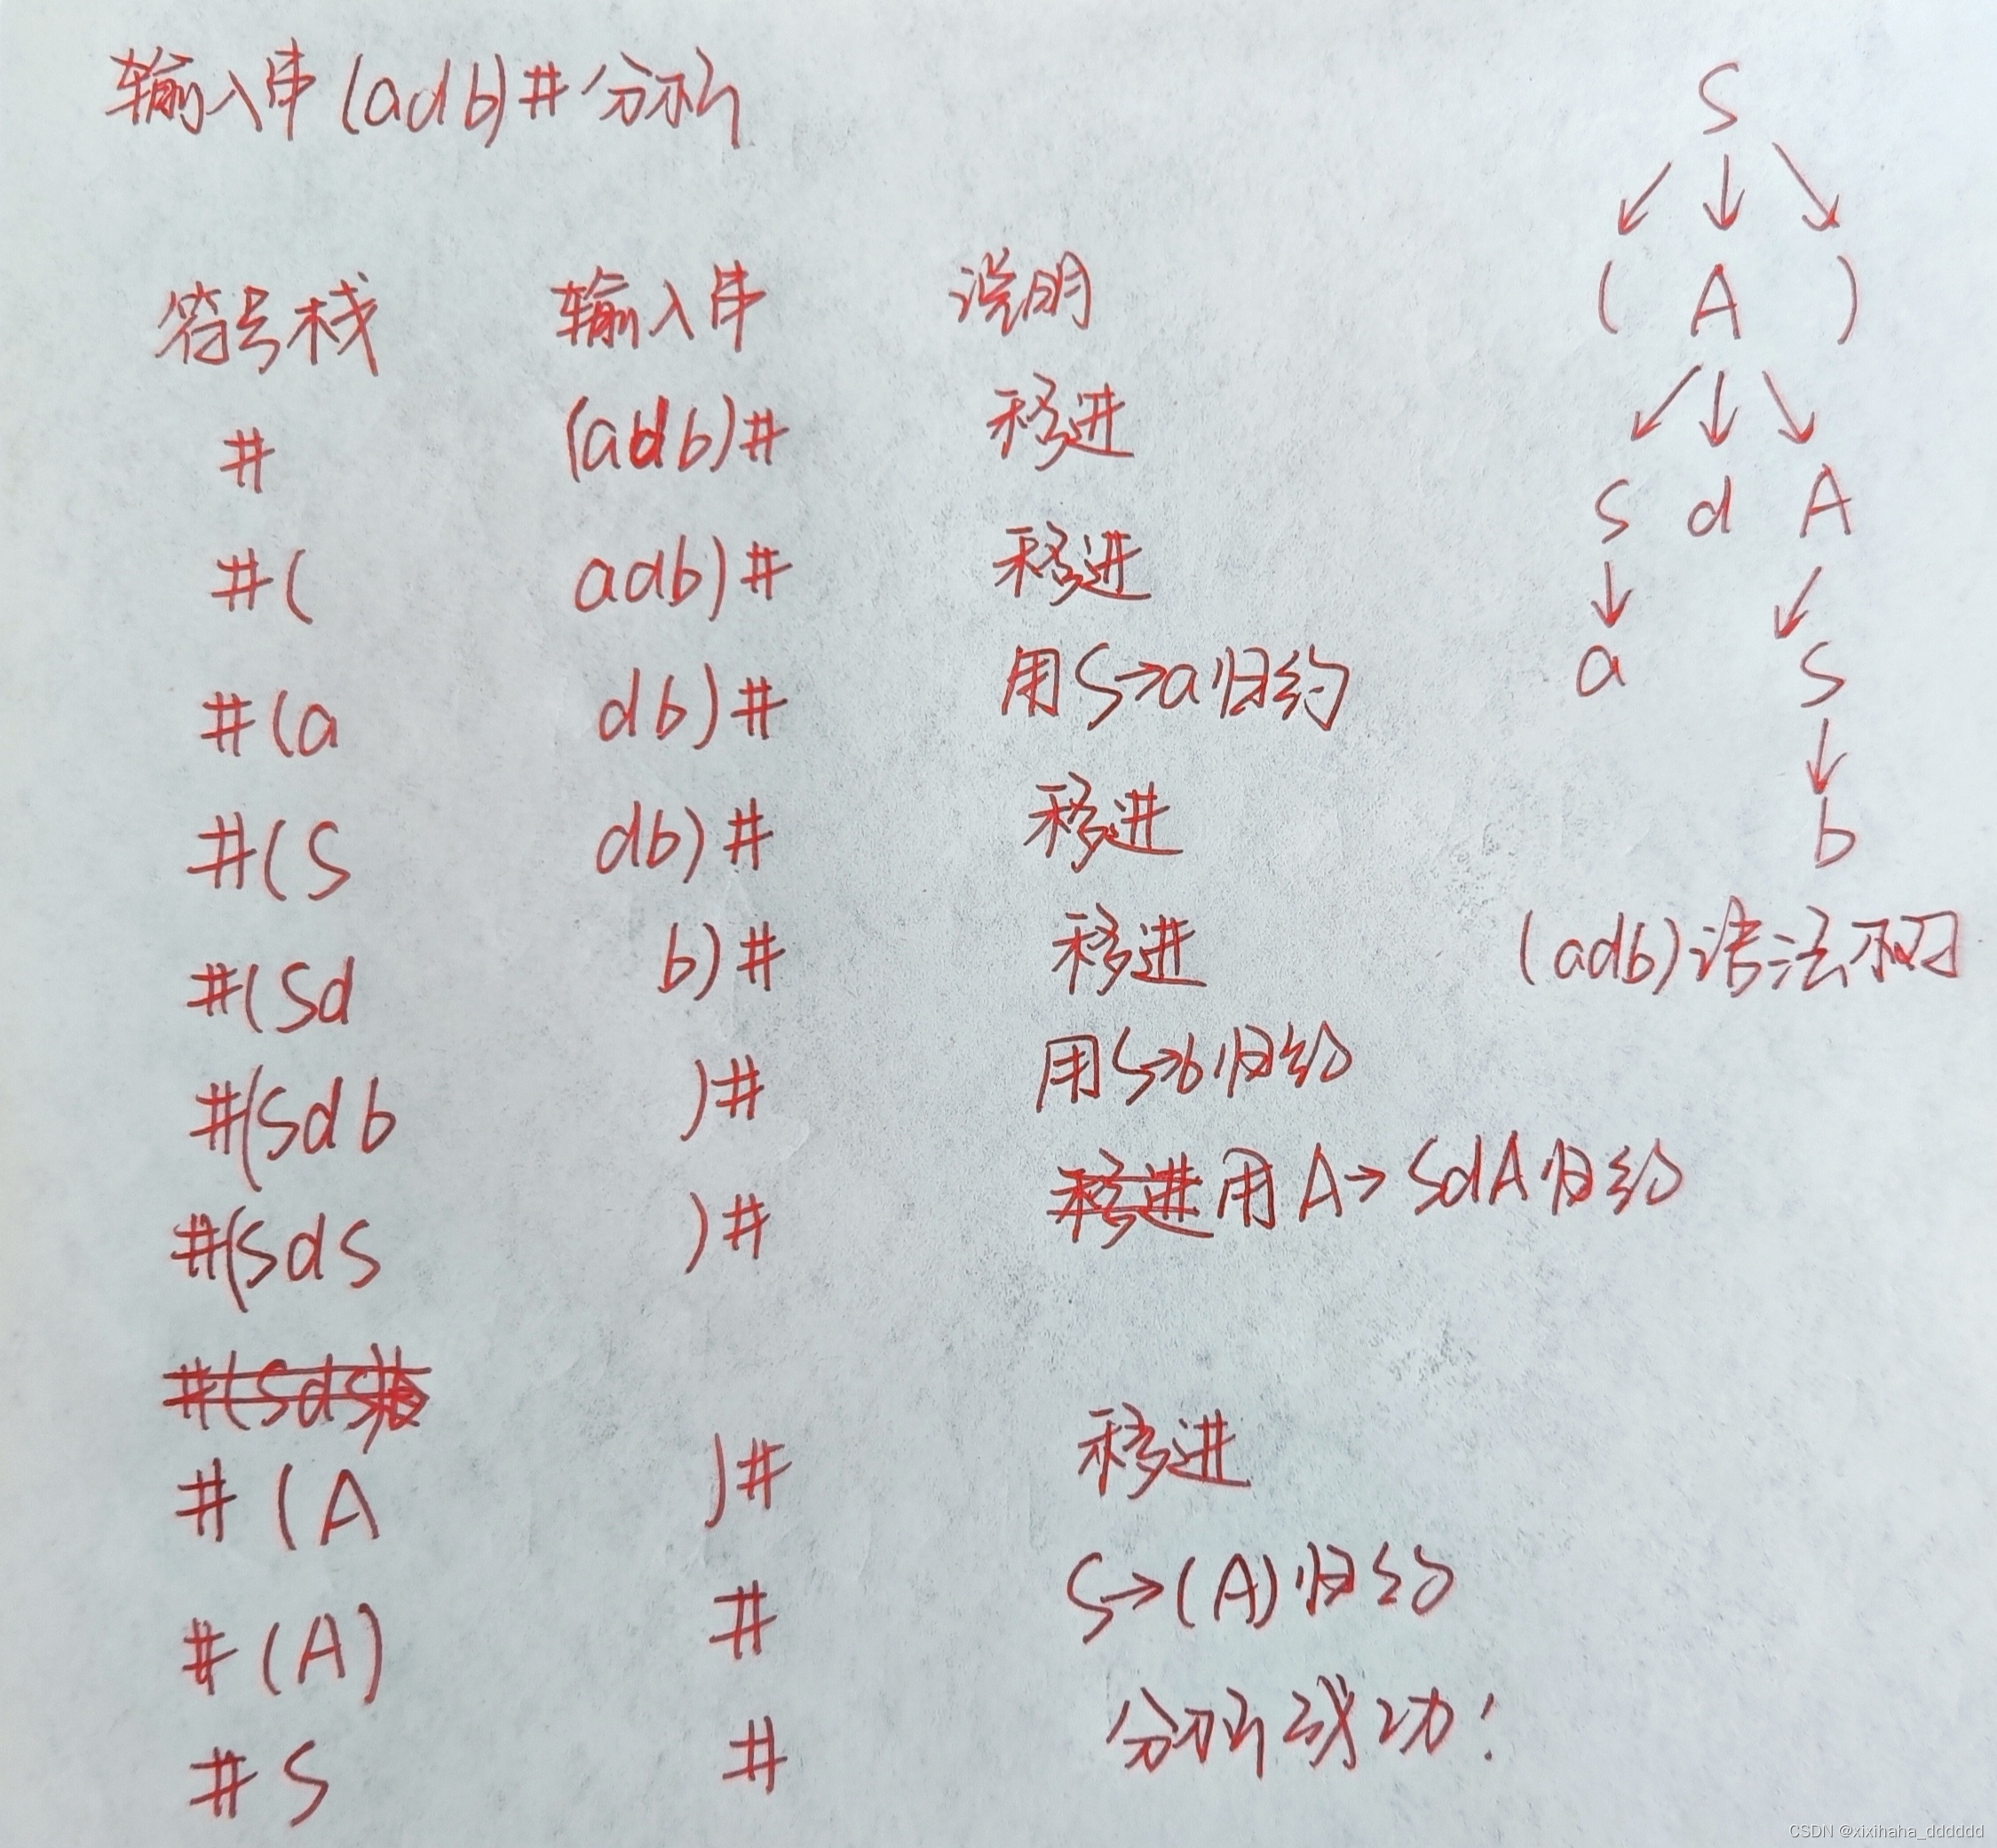 输入串(adb)#分析
符号栈 输入串 说明
# (adb)# 移进
#( adb)# 移进
#(a db)# 用S→a归约
#(S db)# 移进
#(Sd b)# 移进
#(Sdb )# 用S→b归约
#(SdS )# 移进用A→SdA归约
#(SdS)
#(A )# 移进
#(A) # S→(A)归约
#S # 分析成功!
S
( A )
S d A
a S
b
(adb)语法树
CSDN @xixihaha_dddddd